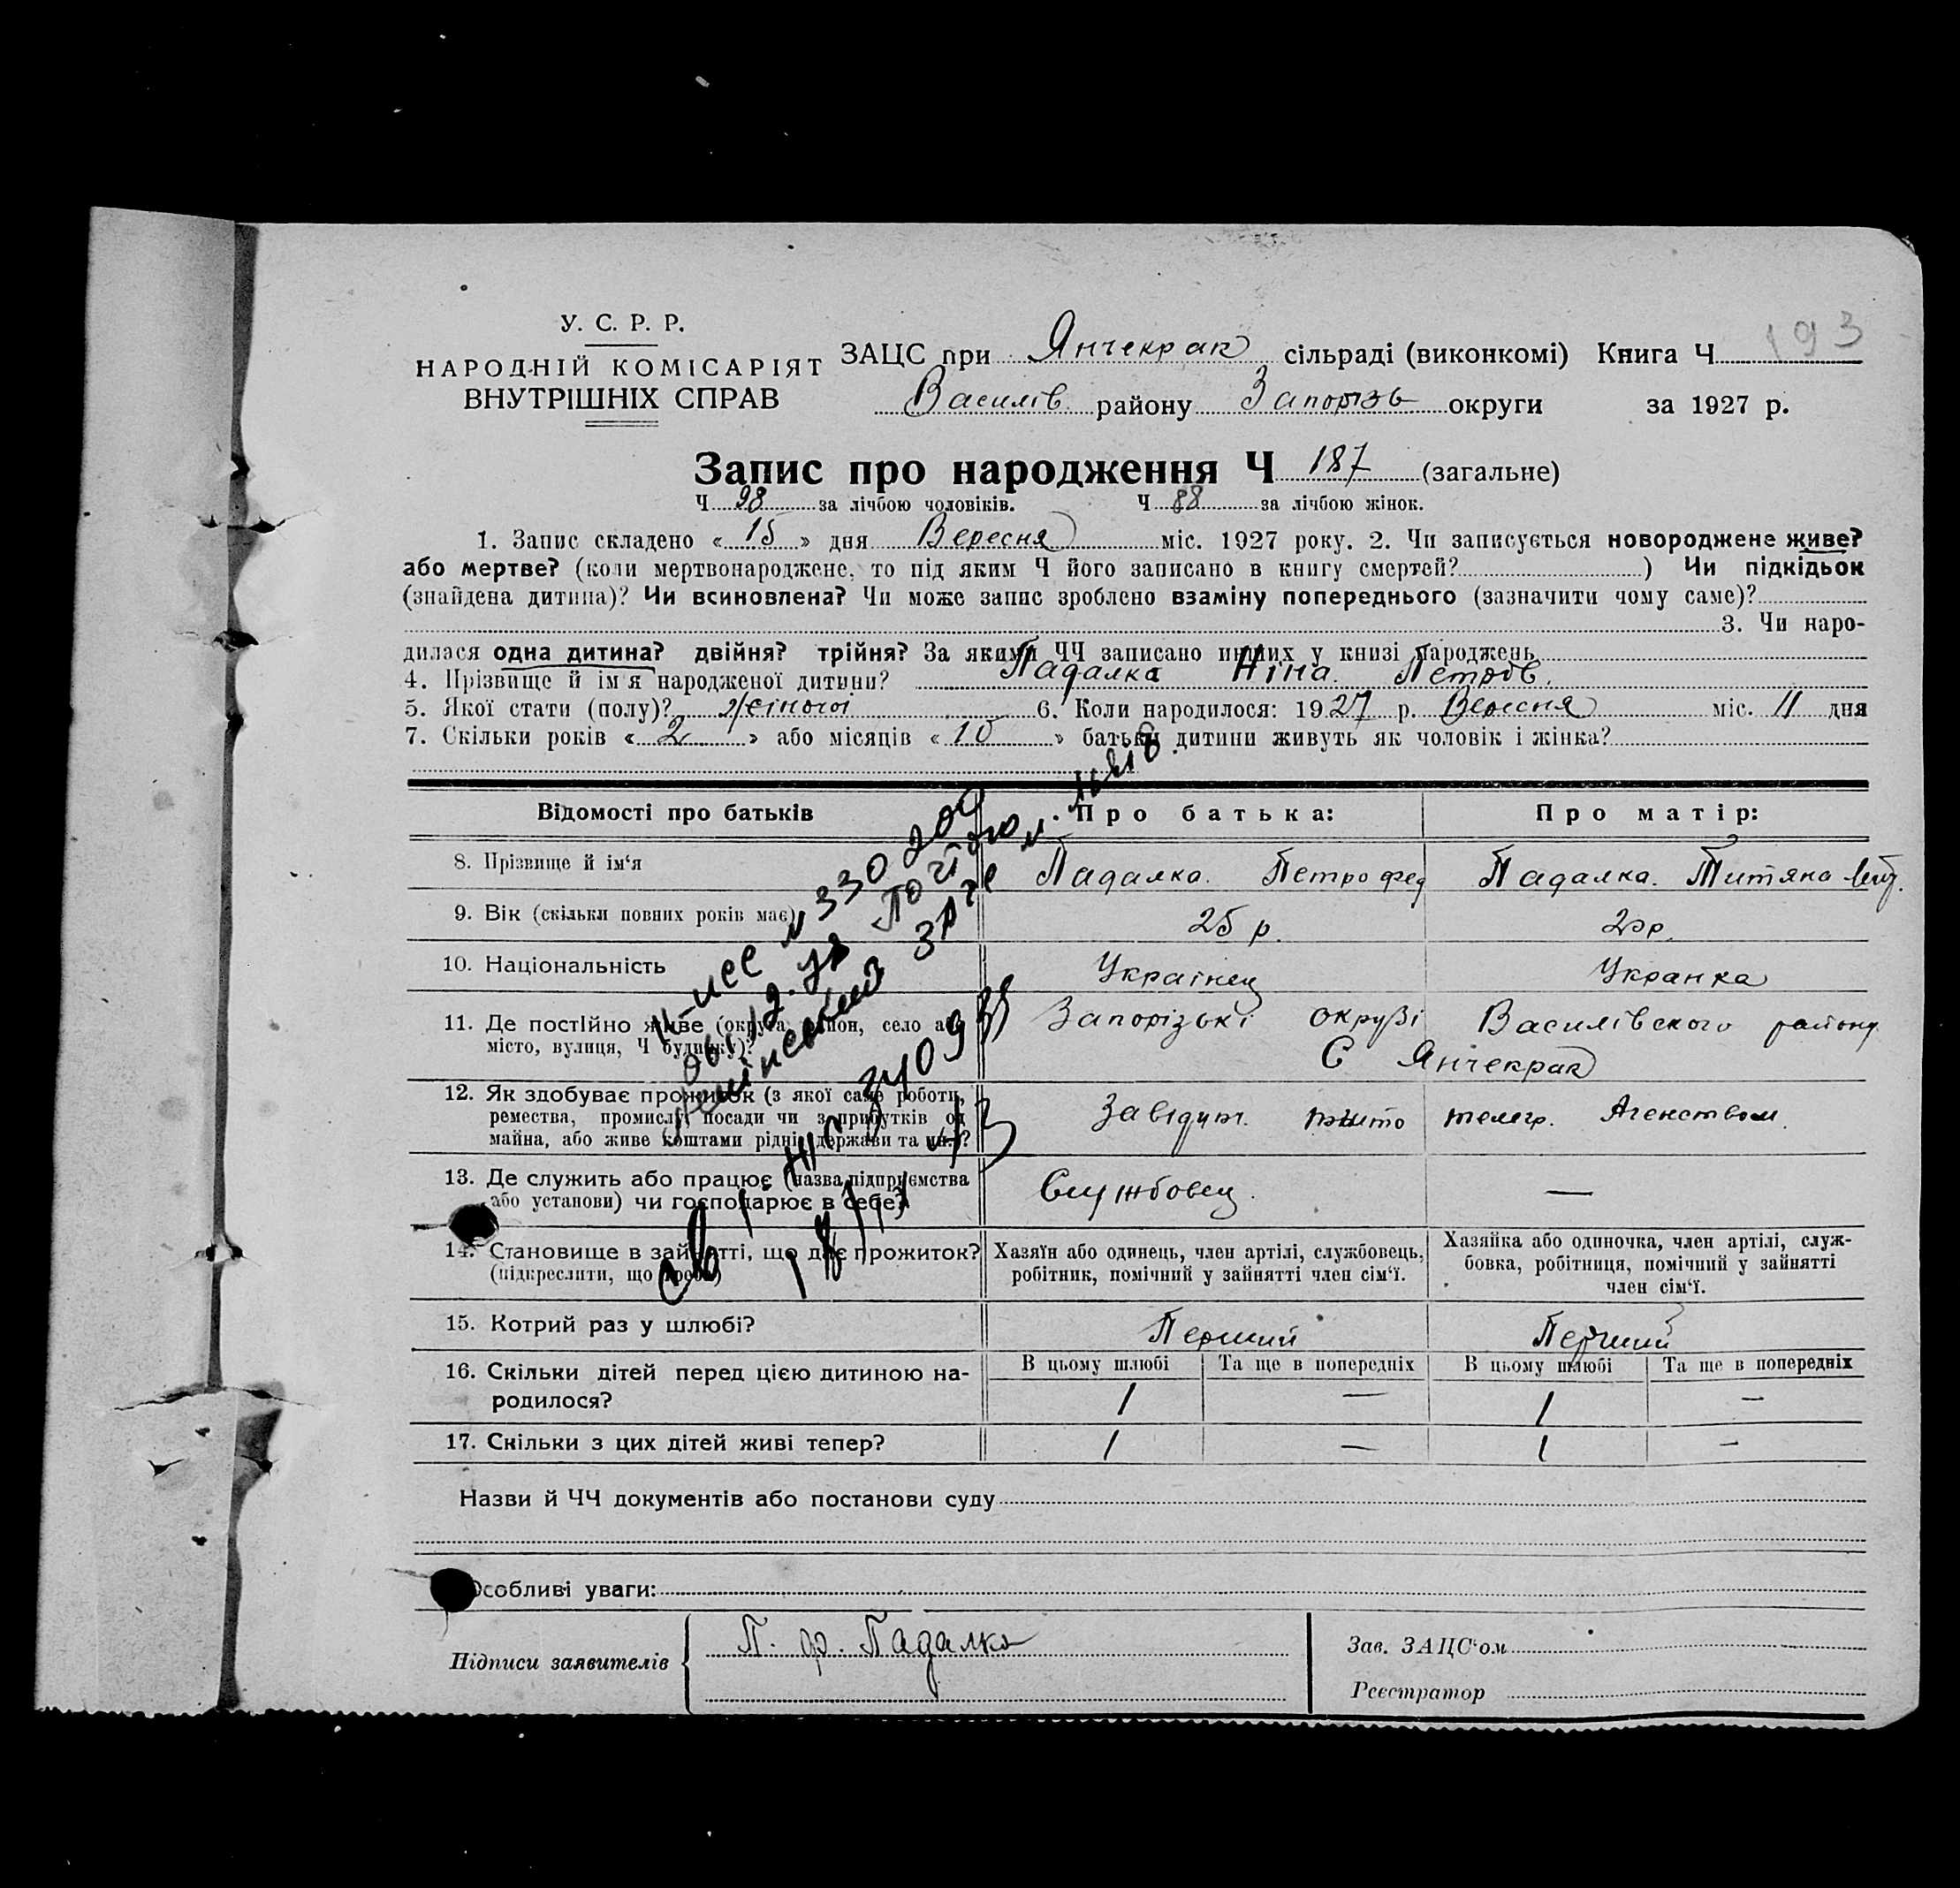 У. С. Р. Р.
НАРОДНІЙ КОМІСАРІЯТ
ВНУТРІШНІХ СПРАВ
193
ЗАЦС при Янчекрак сільраді (виконкомі) Книга Ч
Василів. району Запорізь округи за 1927 р.
Запис про народження Ч 187 (загальне)
Ч 98 за лічбою чоловіків. Ч 88 за лічбою жінок.
1. Запис складено « 15 » дня Вересня міс. 1927 року. 2. Чи записується новороджене живе?
або мертве? (коли мертвонароджене, то під яким Ч його записано в книгу смертей? ) Чи підкідьок
(знайдена дитина)? Чи всиновлена? Чи може запис зроблено взаміну попереднього (зазначити чому саме)?
3. Чи наро-
дилася одна дитина? двійня? трійня? За якими ЧЧ записано инших у книзі народжень
4. Прізвище й ім'я народженої дитини? Падалка Ніна. Петров.
5. Якої стати (полу)? жіночої 6. Коли народилося: 1927 р. Вересня міс. 11 дня
7. Скільки років « 2 » або місяців « 10 » батьки дитини живуть як чоловік і жінка?
Відомості про батьків Про батька: Про матір:
8. Прізвище й ім'я Падалка. Петро фед Падалка. Титяна
9. Вік (скільки повних років має) 25 р.
10. Національність Украінец Укранка
11. Де постійно живе (округа, район, село або
місто, вулиця, Ч будинку)? Запорізькі окрузі Василівського району
С Янчекрак
12. Як здобуває прожиток (з якої саме роботи,
ремества, промислу, посади чи з прибутків од
майна, або живе коштами рідні, держави та ин.)? Завідуч. телегр. Агенством.
13. Де служить або працює (назва підприємства
або установи) чи господарює в себе? Службовец. —
14. Становище в зайнятті, що дає прожиток?
(підкреслити, що треба)
Хазяїн або одинець, член артілі, службовець,
робітник, помічний у зайнятті член сім'ї.
Хазяйка або одиночка, член артілі, служ-
бовка, робітниця, помічний у зайнятті
член сім'ї.
15. Котрий раз у шлюбі? Перший Перший
В цьому шлюбі Та ще в попередніх В цьому шлюбі Та ще в попередніх
16. Скільки дітей перед цією дитиною на-
родилося? 1 — 1 —
17. Скільки з цих дітей живі тепер? 1 — 1 —
Назви й ЧЧ документів або постанови суду
Особливі уваги:
Підписи заявителів П. ф. Падалка
Зав. ЗАЦС'ом
Реєстратор